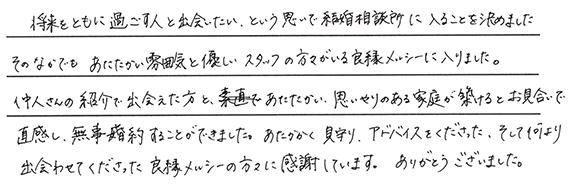 将来をともに過ごす人と出会いたい、という思いで結婚相談所に入ることを決めました
そのなかでも あたたかい雰囲気と優しいスタッフの方々がいる良縁メルシーに入りました。
仲人さんの紹介で出会えた方と、素直であたたかい、思いやりのある家庭が築けるとお見合いで
直感し、無事婚約することができました。あたたかく見守り、アドバイスをくださった、そして何より
出会わせてくださった良縁メルシーの方々に感謝しています。ありがとうございました。